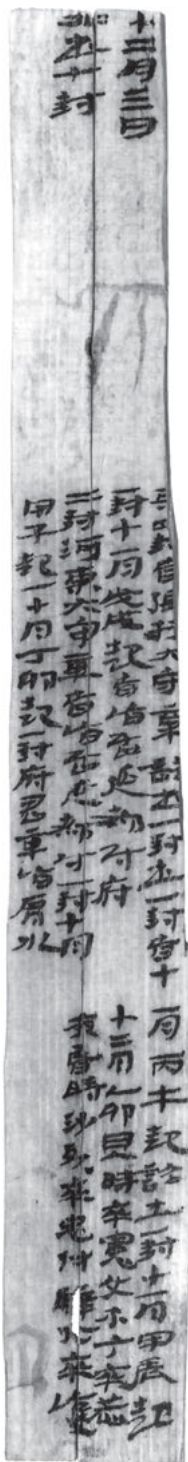 十二月三日
北書七封
其四封皆張掖大守章詔書一封書一封皆十一月丙午起詔書一封十一月甲辰起
一封十一月戊戌起皆詣居延都尉府
二封河東大守章皆詣居延都尉一封十月
甲子起一十月丁卯起一封府君章詣肩水
十二月乙卯日入時卒憲受不今卒恭
夜昏時沙頭卒忠付騂北卒護